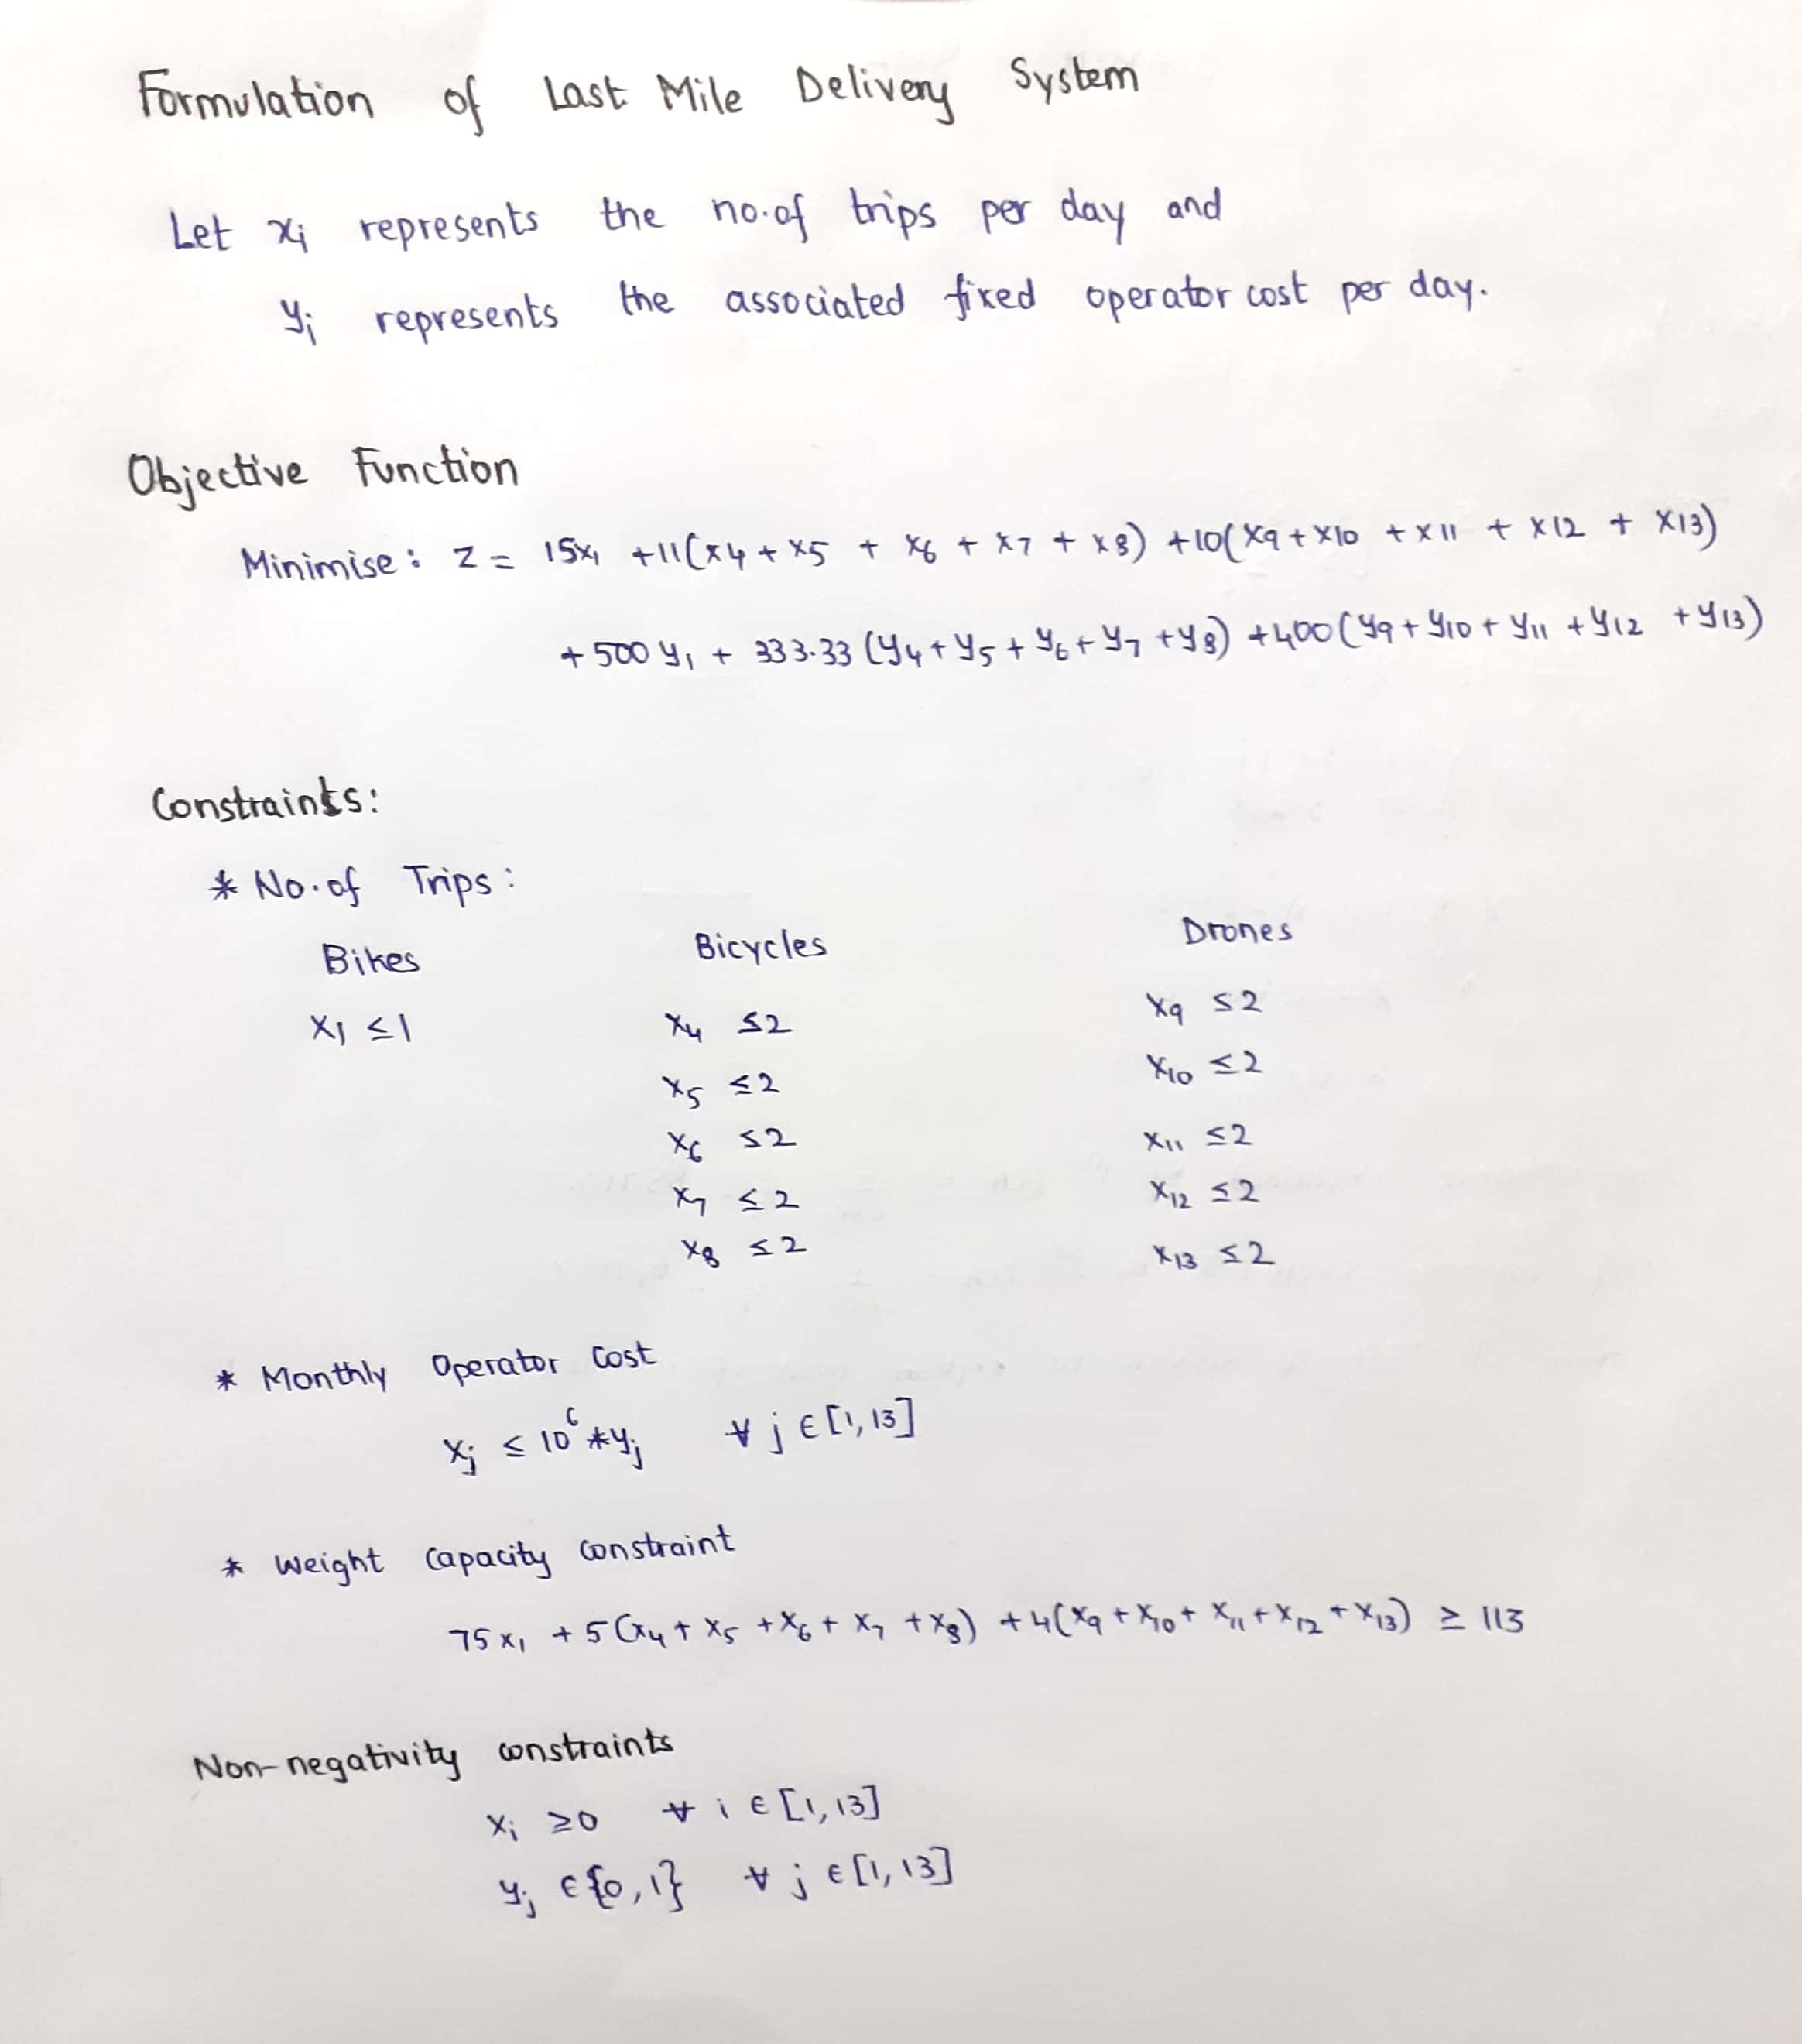 Formulation of Last Mile Delivery System
Let xi represents the no.of trips per day and
yi represents the associated fixed operator cost per day.
Objective Function
Minimise: Z = 15x₁ +11(x4 + x5 + x6 + x7 + x8) +10(x9 + x10 + x11 + x12 + x13)
+ 500 y₁ + 333.33 (y4 + y5 + y6 + y7 + y8) +400 (y9 + y10 + y11 + y12 + y13)
Constraints:
* No.of Trips:
Bikes Bicycles Drones
x₁ ≤1 x₄ ≤2 x₉ ≤2
x₅ ≤2 x₁₀ ≤2
x₆ ≤2 x₁₁ ≤2
x₇ ≤2 x₁₂ ≤2
x₈ ≤2 x₁₃ ≤2
* Monthly Operator Cost
xⱼ ≤ 10⁶ * yⱼ ∀ j ∈ [1,13]
* Weight Capacity constraint
75 x₁ + 5 (x₄ + x₅ + x₆ + x₇ + x₈) + 4(x₉ + x₁₀ + x₁₁ + x₁₂ + x₁₃) ≥ 113
Non-negativity constraints
xᵢ ≥0 ∀ i ∈ [1,13]
yⱼ ∈ {0,1} ∀ j ∈ [1,13]